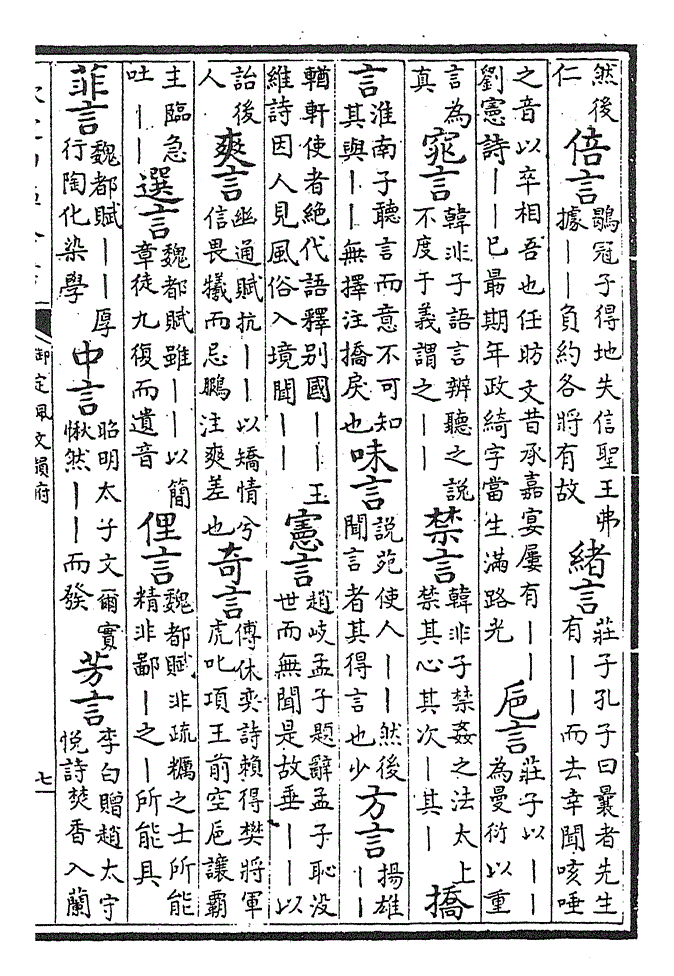 然後
仁
倍言
鶡冠子得地失信聖王弗
據——負約各將有故
緒言
莊子孔子曰曩者先生
有——而去幸聞咳唾
之音以卒相吾也任昉文昔承嘉宴屢有——
劉憲詩——已最期年政綺字當生滿路光
巵言
莊子以——
為曼衍以重
言為
真
窕言
韓非子語言辨聽之說
不度于義謂之——
禁言
韓非子禁姦之法太上
禁其心其次—其—
撟
言
淮南子聽言而意不可知
其與——無擇注撟戾也
味言
說苑使人——然後
聞言者其得言也少
方言
揚雄
——
輶軒使者絶代語釋别國——王
維詩因人見風俗入境聞——
憲言
趙岐孟子題辭孟子恥没
世而無聞是故垂——以
詒後
人
爽言
幽通賦抗——以矯情兮
信畏犧而忌鵩注爽差也
奇言
傅休奕詩賴得樊將軍
虎叱項王前空巵讓霸
主臨急
吐——
選言
魏都賦雖——以簡
章徒九復而遺音
俚言
魏都賦非疏糲之士所能
精非鄙—之—所能具
菲言
魏都賦——厚
行陶化染學
中言
昭明太子文爾實
愀然——而發
芳言
李白贈趙太守
悦詩焚香入蘭
御定佩文韻府
七